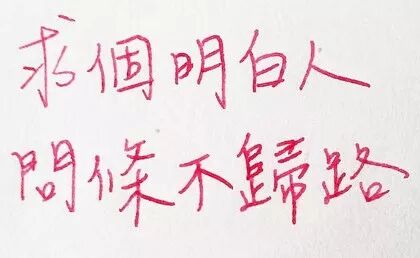 求個明白人
問條不歸路